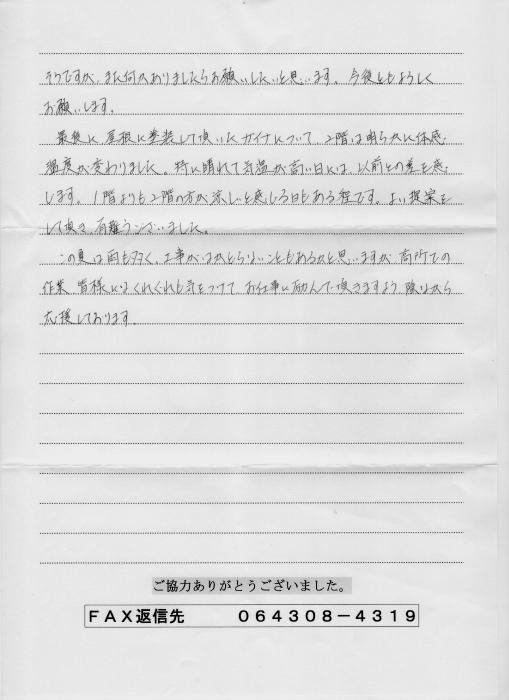 そうですが、また何かありましたらお願いしたいと思います。今後ともよろしく
お願いします。
最後に、屋根に塗装して頂いたガイナについて、2階は明らかに体感
温度が変わりました。特に晴れて気温が高い日には、以前との差を感
じます。1階よりも2階の方が涼しいと感じる日もある程です。よい提案を
して頂き、有難うございました。
この夏は雨も多く、工事がはかどらないこともあるかと思いますが、高所での
作業、皆様にはくれぐれも気をつけて、お仕事に励んで頂きますよう、陰ながら
応援しております。
ご協力ありがとうございました。
FAX返信先 064308-4319